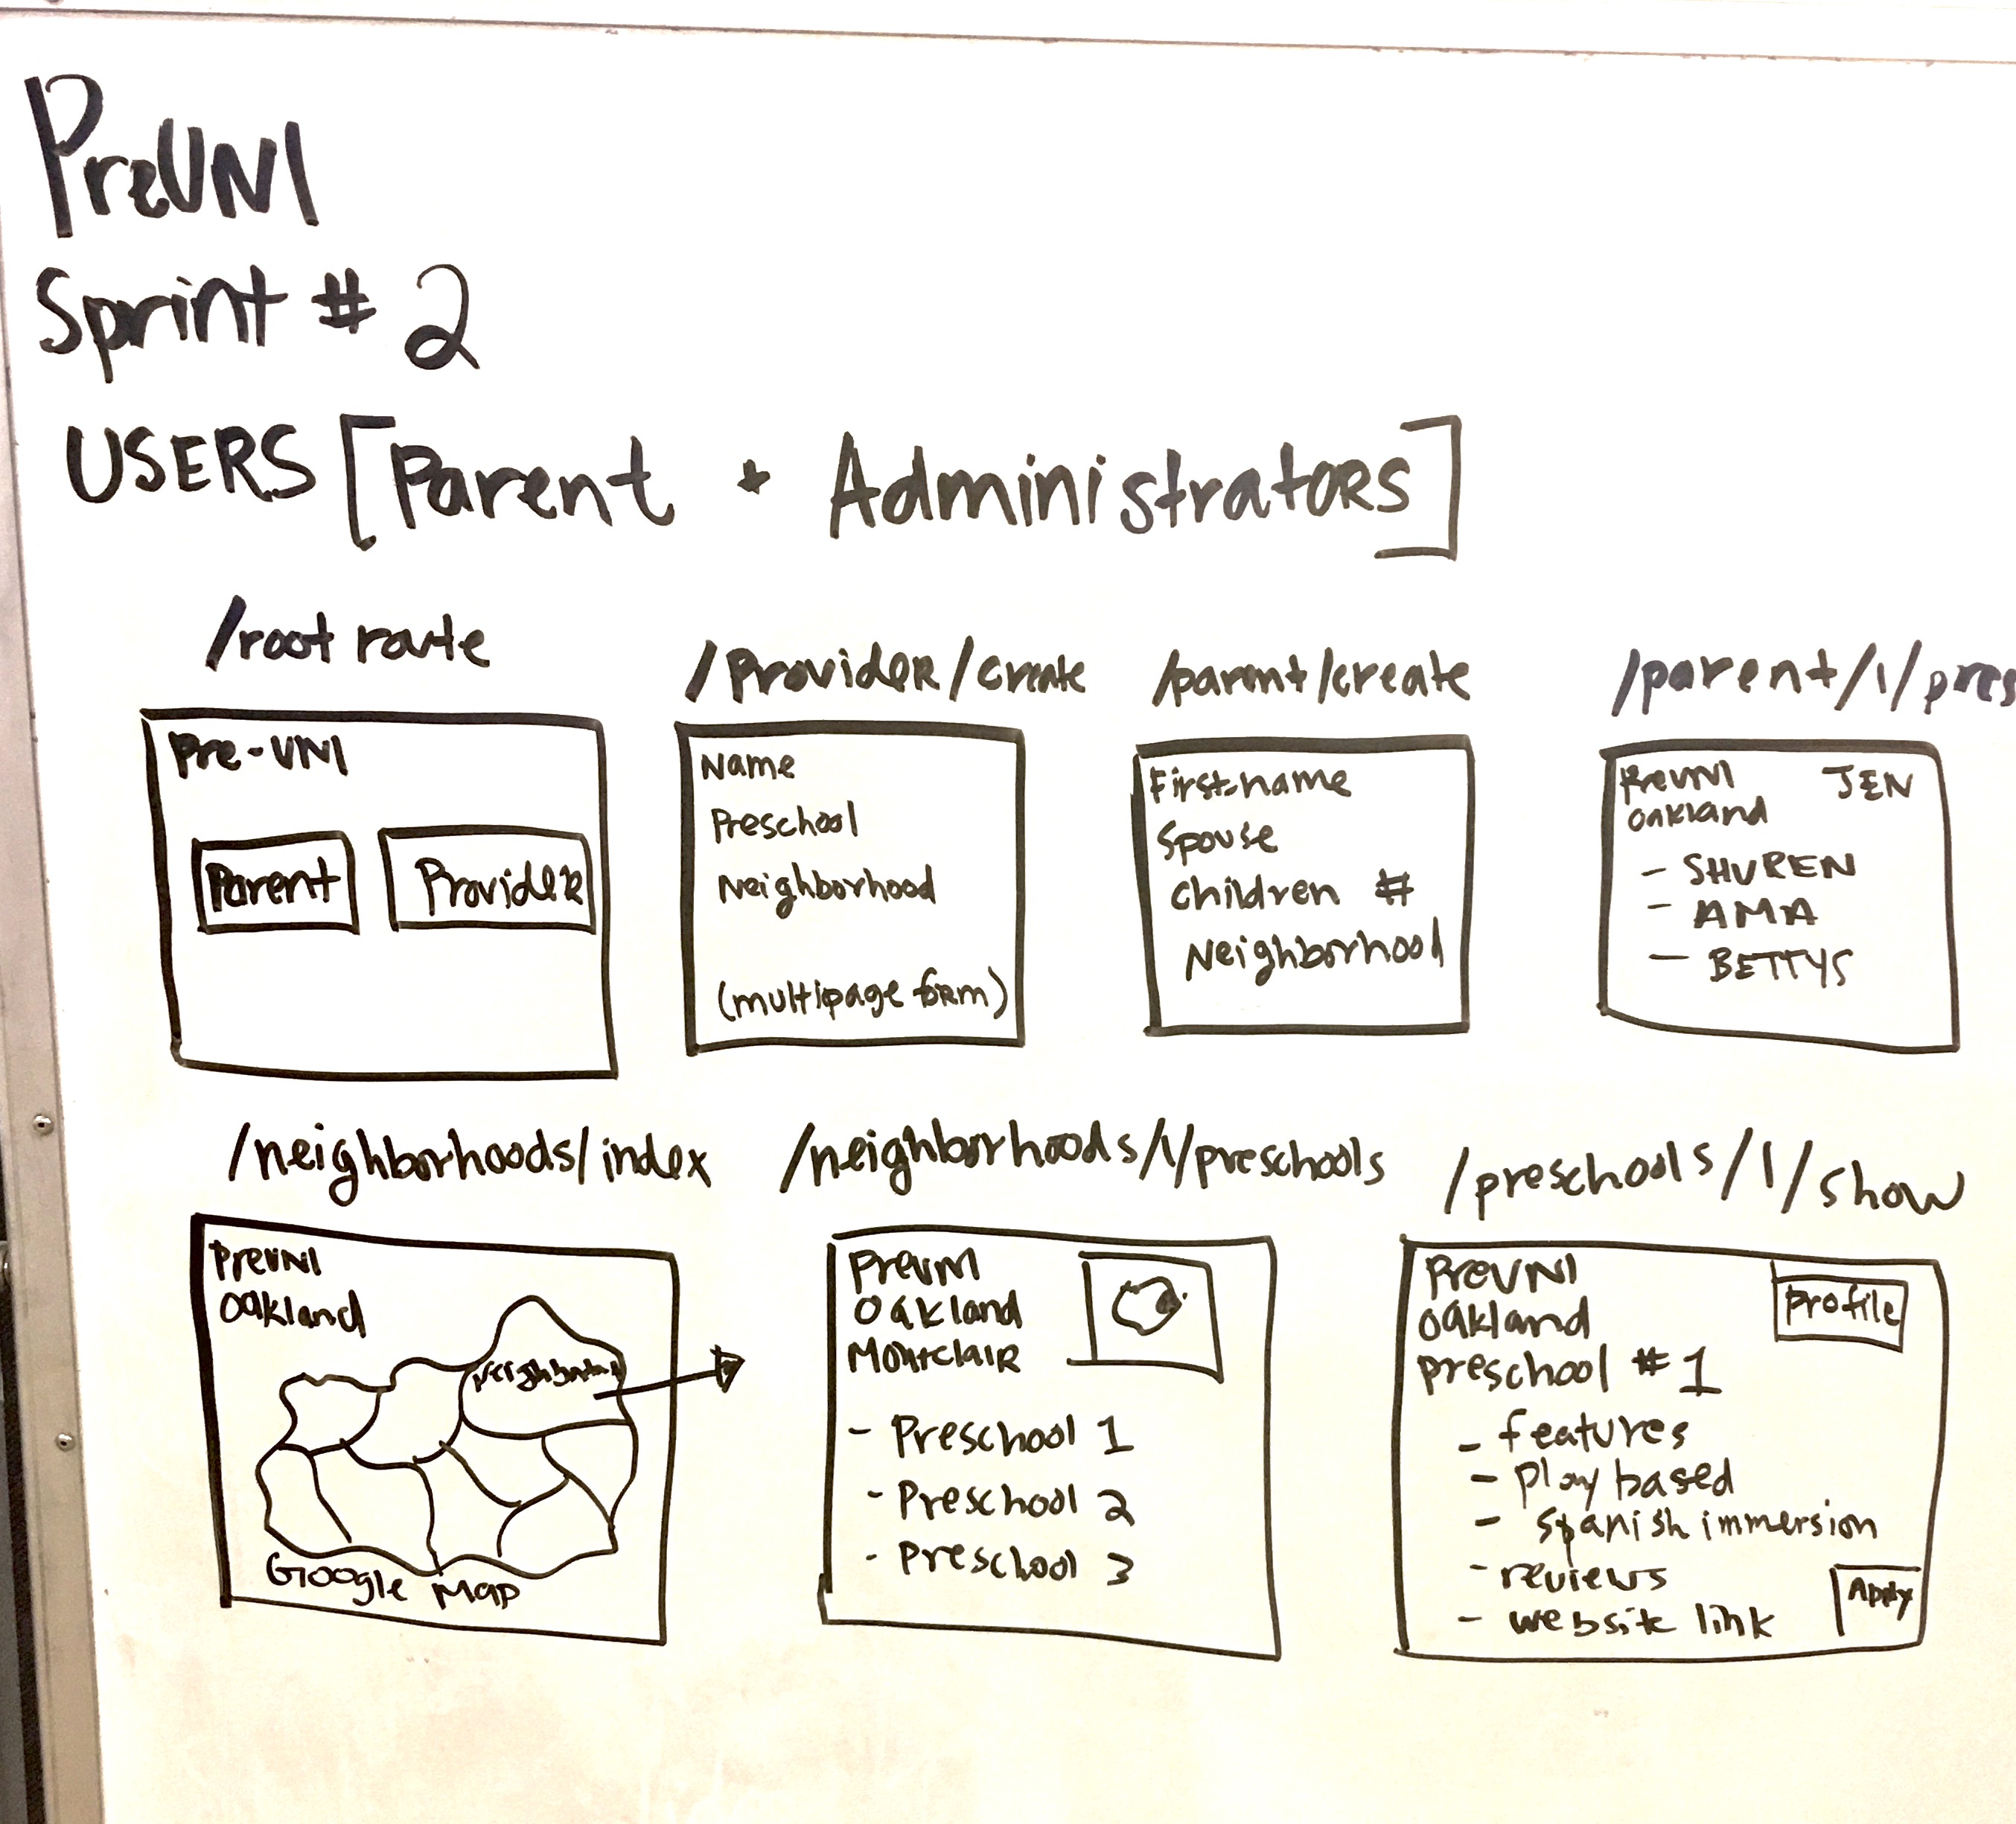 PreUNI
Sprint # 2
USERS [Parent + Administrators]
/root route
Pre-UNI
Parent
Provider
/Provider/create
Name
Preschool
Neighborhood
(multipage form)
/parent/create
First-name
Spouse
children #
Neighborhood
/parent/1/pres
PreUNI JEN
Oakland
- SHUREN
- AMA
- BETTYS
/neighborhoods/index
PreUNI
Oakland
Google Map
/neighborhoods/1/preschools
PreUNI
Oakland
Montclair
- Preschool 1
- Preschool 2
- Preschool 3
/preschools/1/show
PreUNI
Profile
Oakland
preschool #1
- features
- play based
- spanish immersion
- reviews
- website link
Apply